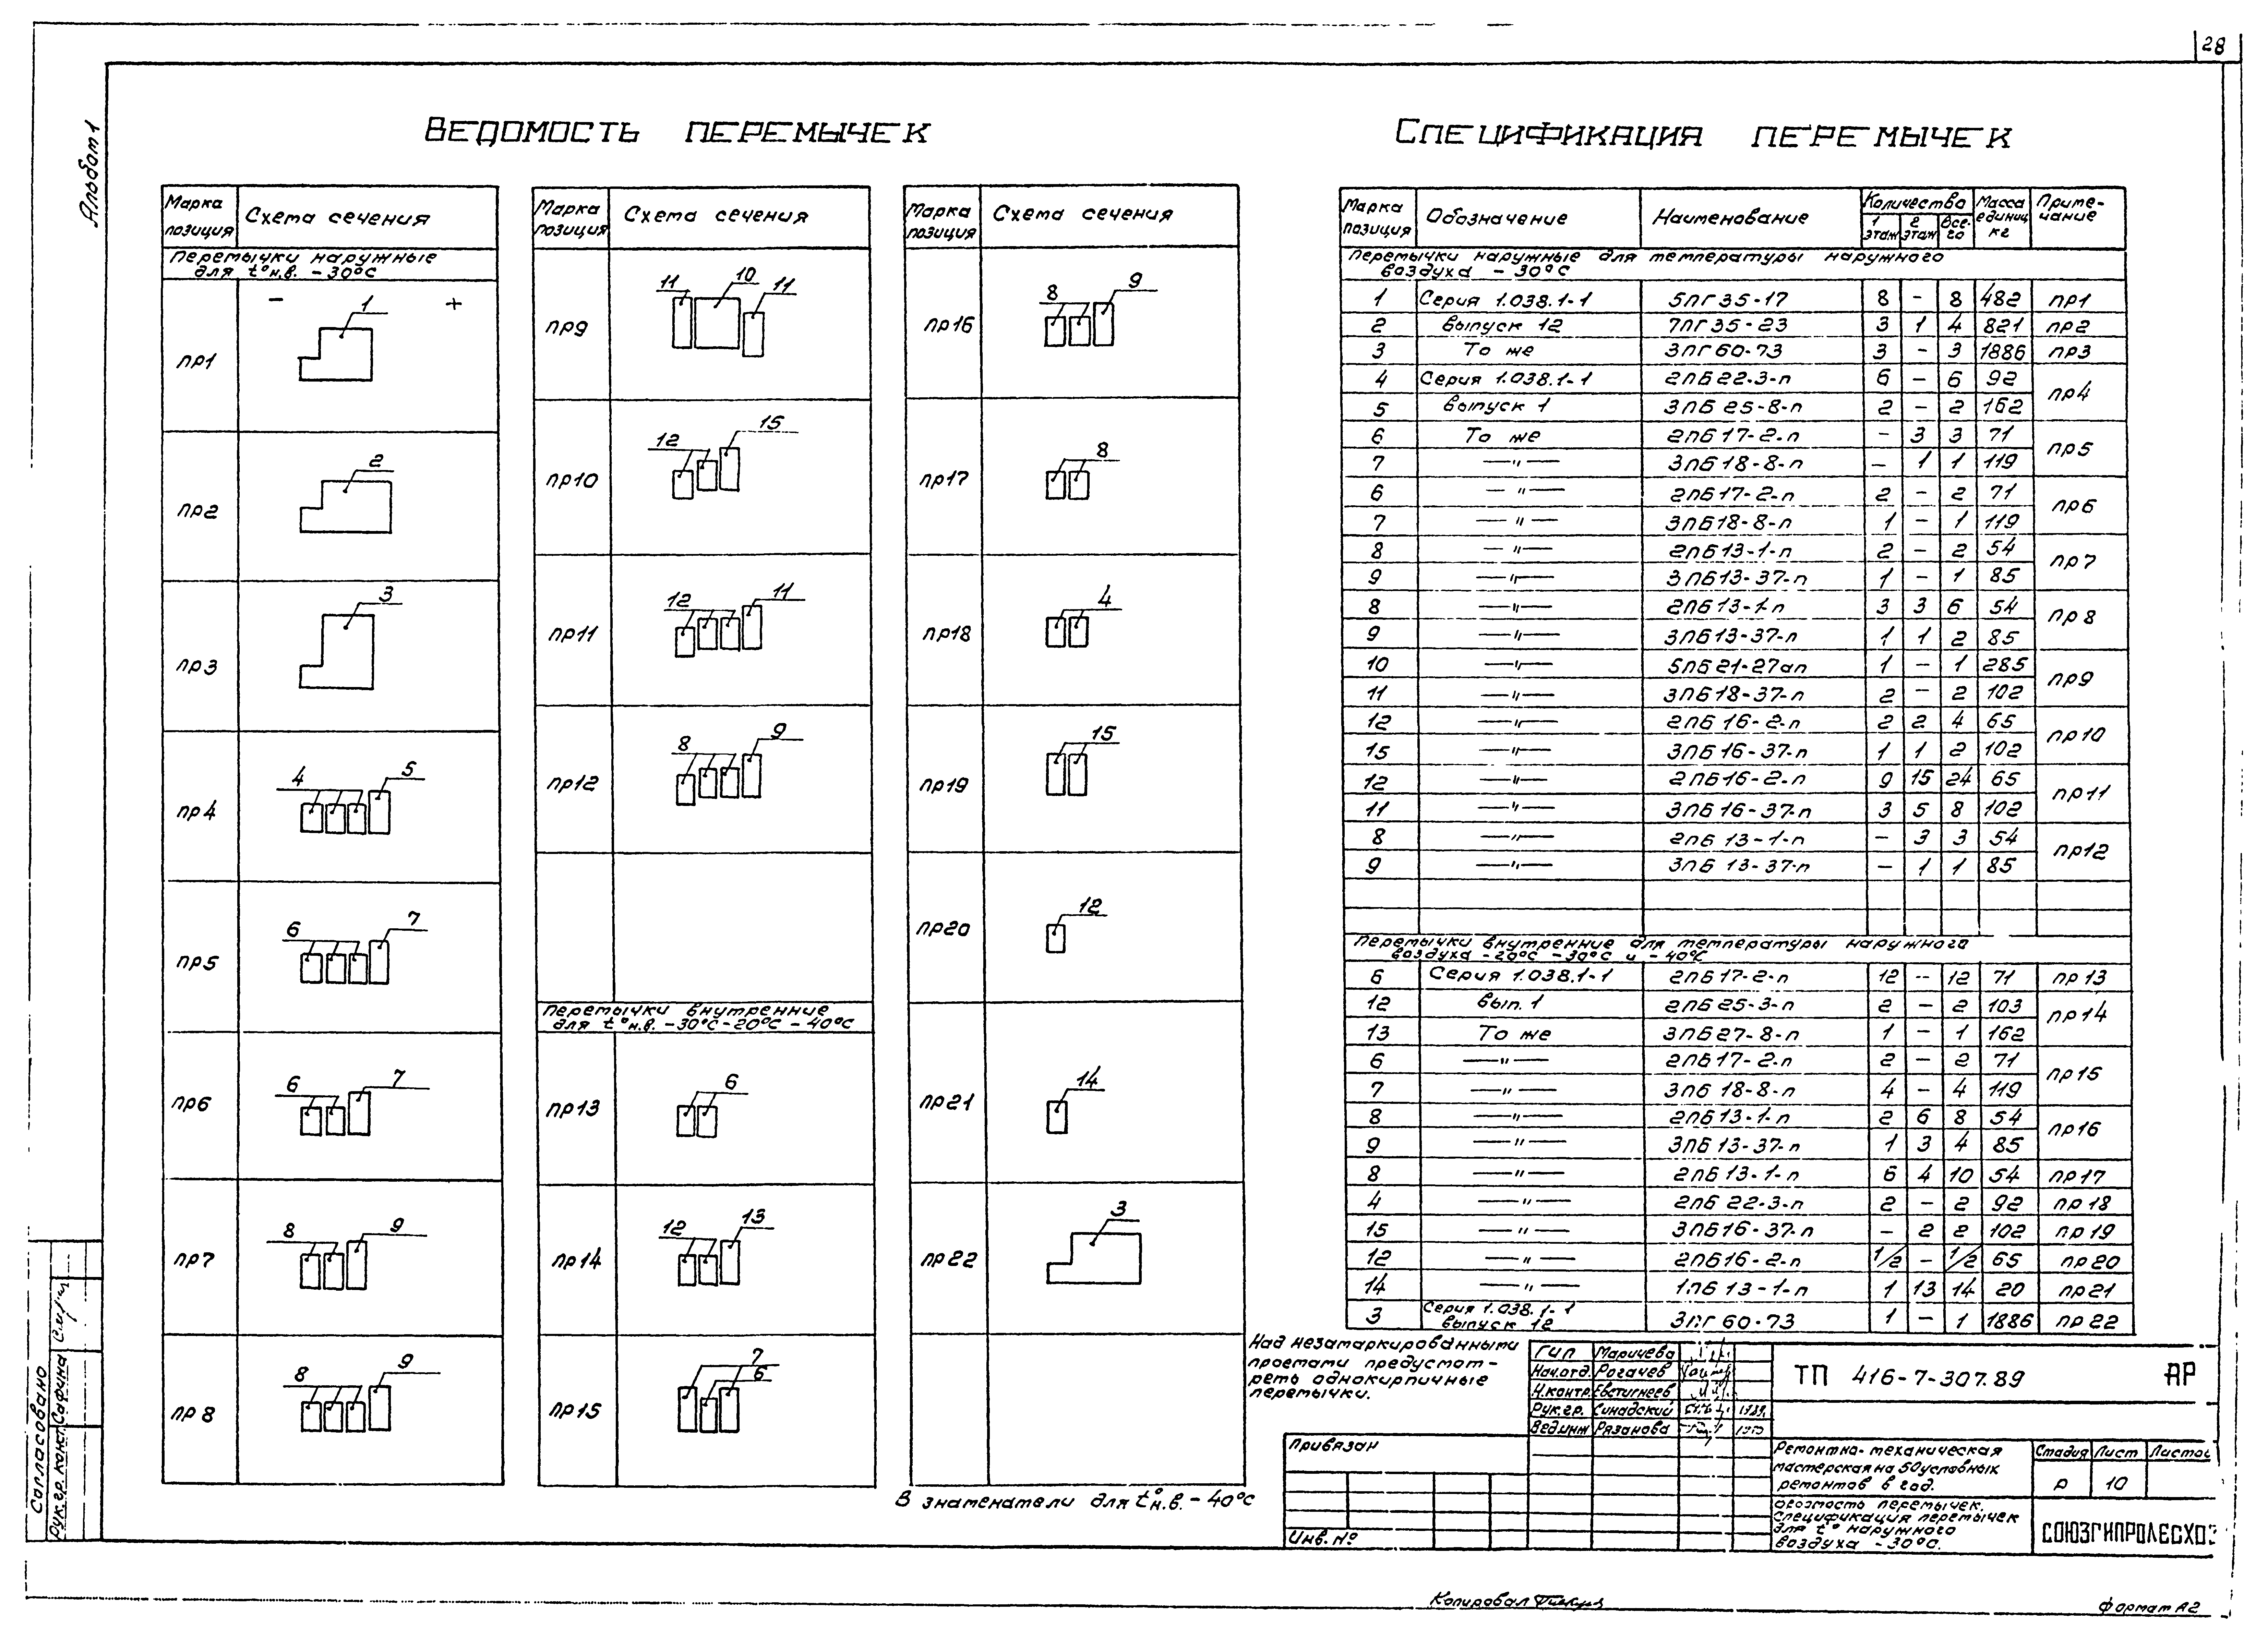 28
Альбом 1
ВЕДОМОСТЬ ПЕРЕМЫЧЕК
Марка позиция Схема сечения
Перемычки наружные
для t°н.в. -30°С
пр1 - 1 +
пр2 2
пр3 3
пр4 4 5
пр5 6 7
пр6 6 7
пр7 8 9
пр8 8 9
Марка позиция Схема сечения
пр9 11 10 11
пр10 12 15
пр11 12 11
пр12 8 9
Перемычки внутренние
для t°н.в. -30°С -20°С -40°С
пр13 6
пр14 12 13
пр15 7 6
Марка позиция Схема сечения
пр16 8 9
пр17 8
пр18 4
пр19 15
пр20 12
пр21 14
пр22 3
В знаменатели для t°н.в. -40°С
СПЕЦИФИКАЦИЯ ПЕРЕМЫЧЕК
Марка позиция Обозначение Наименование Количество 1 этаж 2 этаж Все-го Масса единиц кг Приме-чание
Перемычки наружные для температуры наружного
воздуха -30°С
1 Серия 1.038.1-1 5пг35-17 8 - 8 482 пр1
2 выпуск 12 7пг35-23 3 1 4 821 пр2
3 То же 3пг60-73 3 - 3 1886 пр3
4 Серия 1.038.1-1 2пб22-3-п 6 - 6 92 пр4
5 выпуск 1 3пб25-8-п 2 - 2 162
6 То же 2пб17-2-п - 3 3 71 пр5
7 —"— 3пб18-8-п - 1 1 119
6 —"— 2пб17-2-п 2 - 2 71 пр6
7 —"— 3пб18-8-п 1 - 1 119
8 —"— 2пб13-1-п 2 - 2 54 пр7
9 —"— 3пб13-37-п 1 - 1 85
8 —"— 2пб13-1-п 3 3 6 54 пр8
9 —"— 3пб13-37-п 1 1 2 85
10 —"— 5пб21-27ап 1 - 1 285 пр9
11 —"— 3пб18-37-п 2 - 2 102
12 —"— 2пб16-2-п 2 2 4 65 пр10
15 —"— 3пб16-37-п 1 1 2 102
12 —"— 2пб16-2-п 9 15 24 65 пр11
11 —"— 3пб16-37-п 3 5 8 102
8 —"— 2пб13-1-п - 3 3 54 пр12
9 —"— 3пб13-37-п - 1 1 85
Перемычки внутренние для температуры наружного
воздуха -20°С -30°С и -40°С
6 Серия 1.038.1-1 2пб17-2-п 12 - 12 71 пр13
12 вып. 1 2пб25-3-п 2 - 2 103 пр14
13 То же 3пб27-8-п 1 - 1 162
6 —"— 2пб17-2-п 2 - 2 71 пр15
7 —"— 3пб18-8-п 4 - 4 119
8 —"— 2пб13-1-п 2 6 8 54 пр16
9 —"— 3пб13-37-п 1 3 4 85
8 —"— 2пб13-1-п 6 4 10 54 пр17
4 —"— 2пб22-3-п 2 - 2 92 пр18
15 —"— 3пб16-37-п - 2 2 102 пр19
12 —"— 2пб16-2-п 1/2 - 1/2 65 пр20
14 —"— 1пб13-1-п 1 13 14 20 пр21
3 Серия 1.038.1-1 выпуск 12 3пг60-73 1 - 1 1886 пр22
Над незамаркированными
проемами предусмот-
реть однокирпичные
перемычки.
Гип Маричева
Нач.отд. Рогачев
Н.контр. Евстигнеев
Рук.гр. Синадский
Вед.инж Рязанова
ТП 416-7-307.89 АР
Привязан
Инв. №
Ремонтно-механическая
мастерская на 50 условных
ремонтов в год.
Стадия Лист Листов
Р 10
едомость перемычек.
Спецификация перемычек
для t° наружного
воздуха -30°С.
СОЮЗГИПРОЛЕСХОЗ
Согласовано
Рук.гр. конст Сафина
Копировал
Формат А2